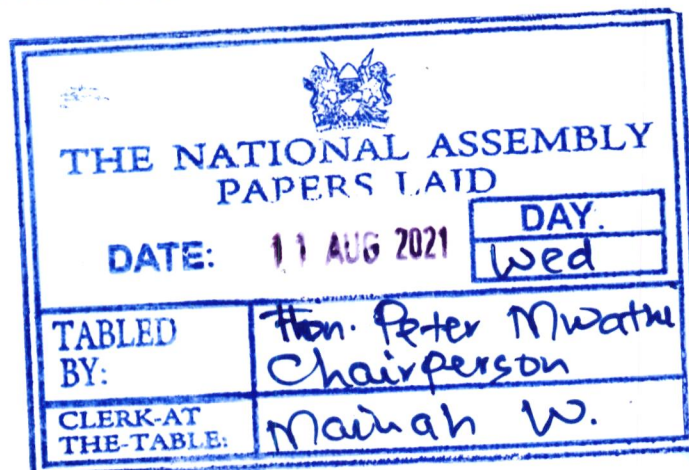 THE NATIONAL ASSEMBLY
PAPERS LAID
DATE: 11 AUG 2021 DAY.
Wed
TABLED BY: Hon. Peter Mwathi
Chairperson
CLERK-AT THE-TABLE: Mainah W.